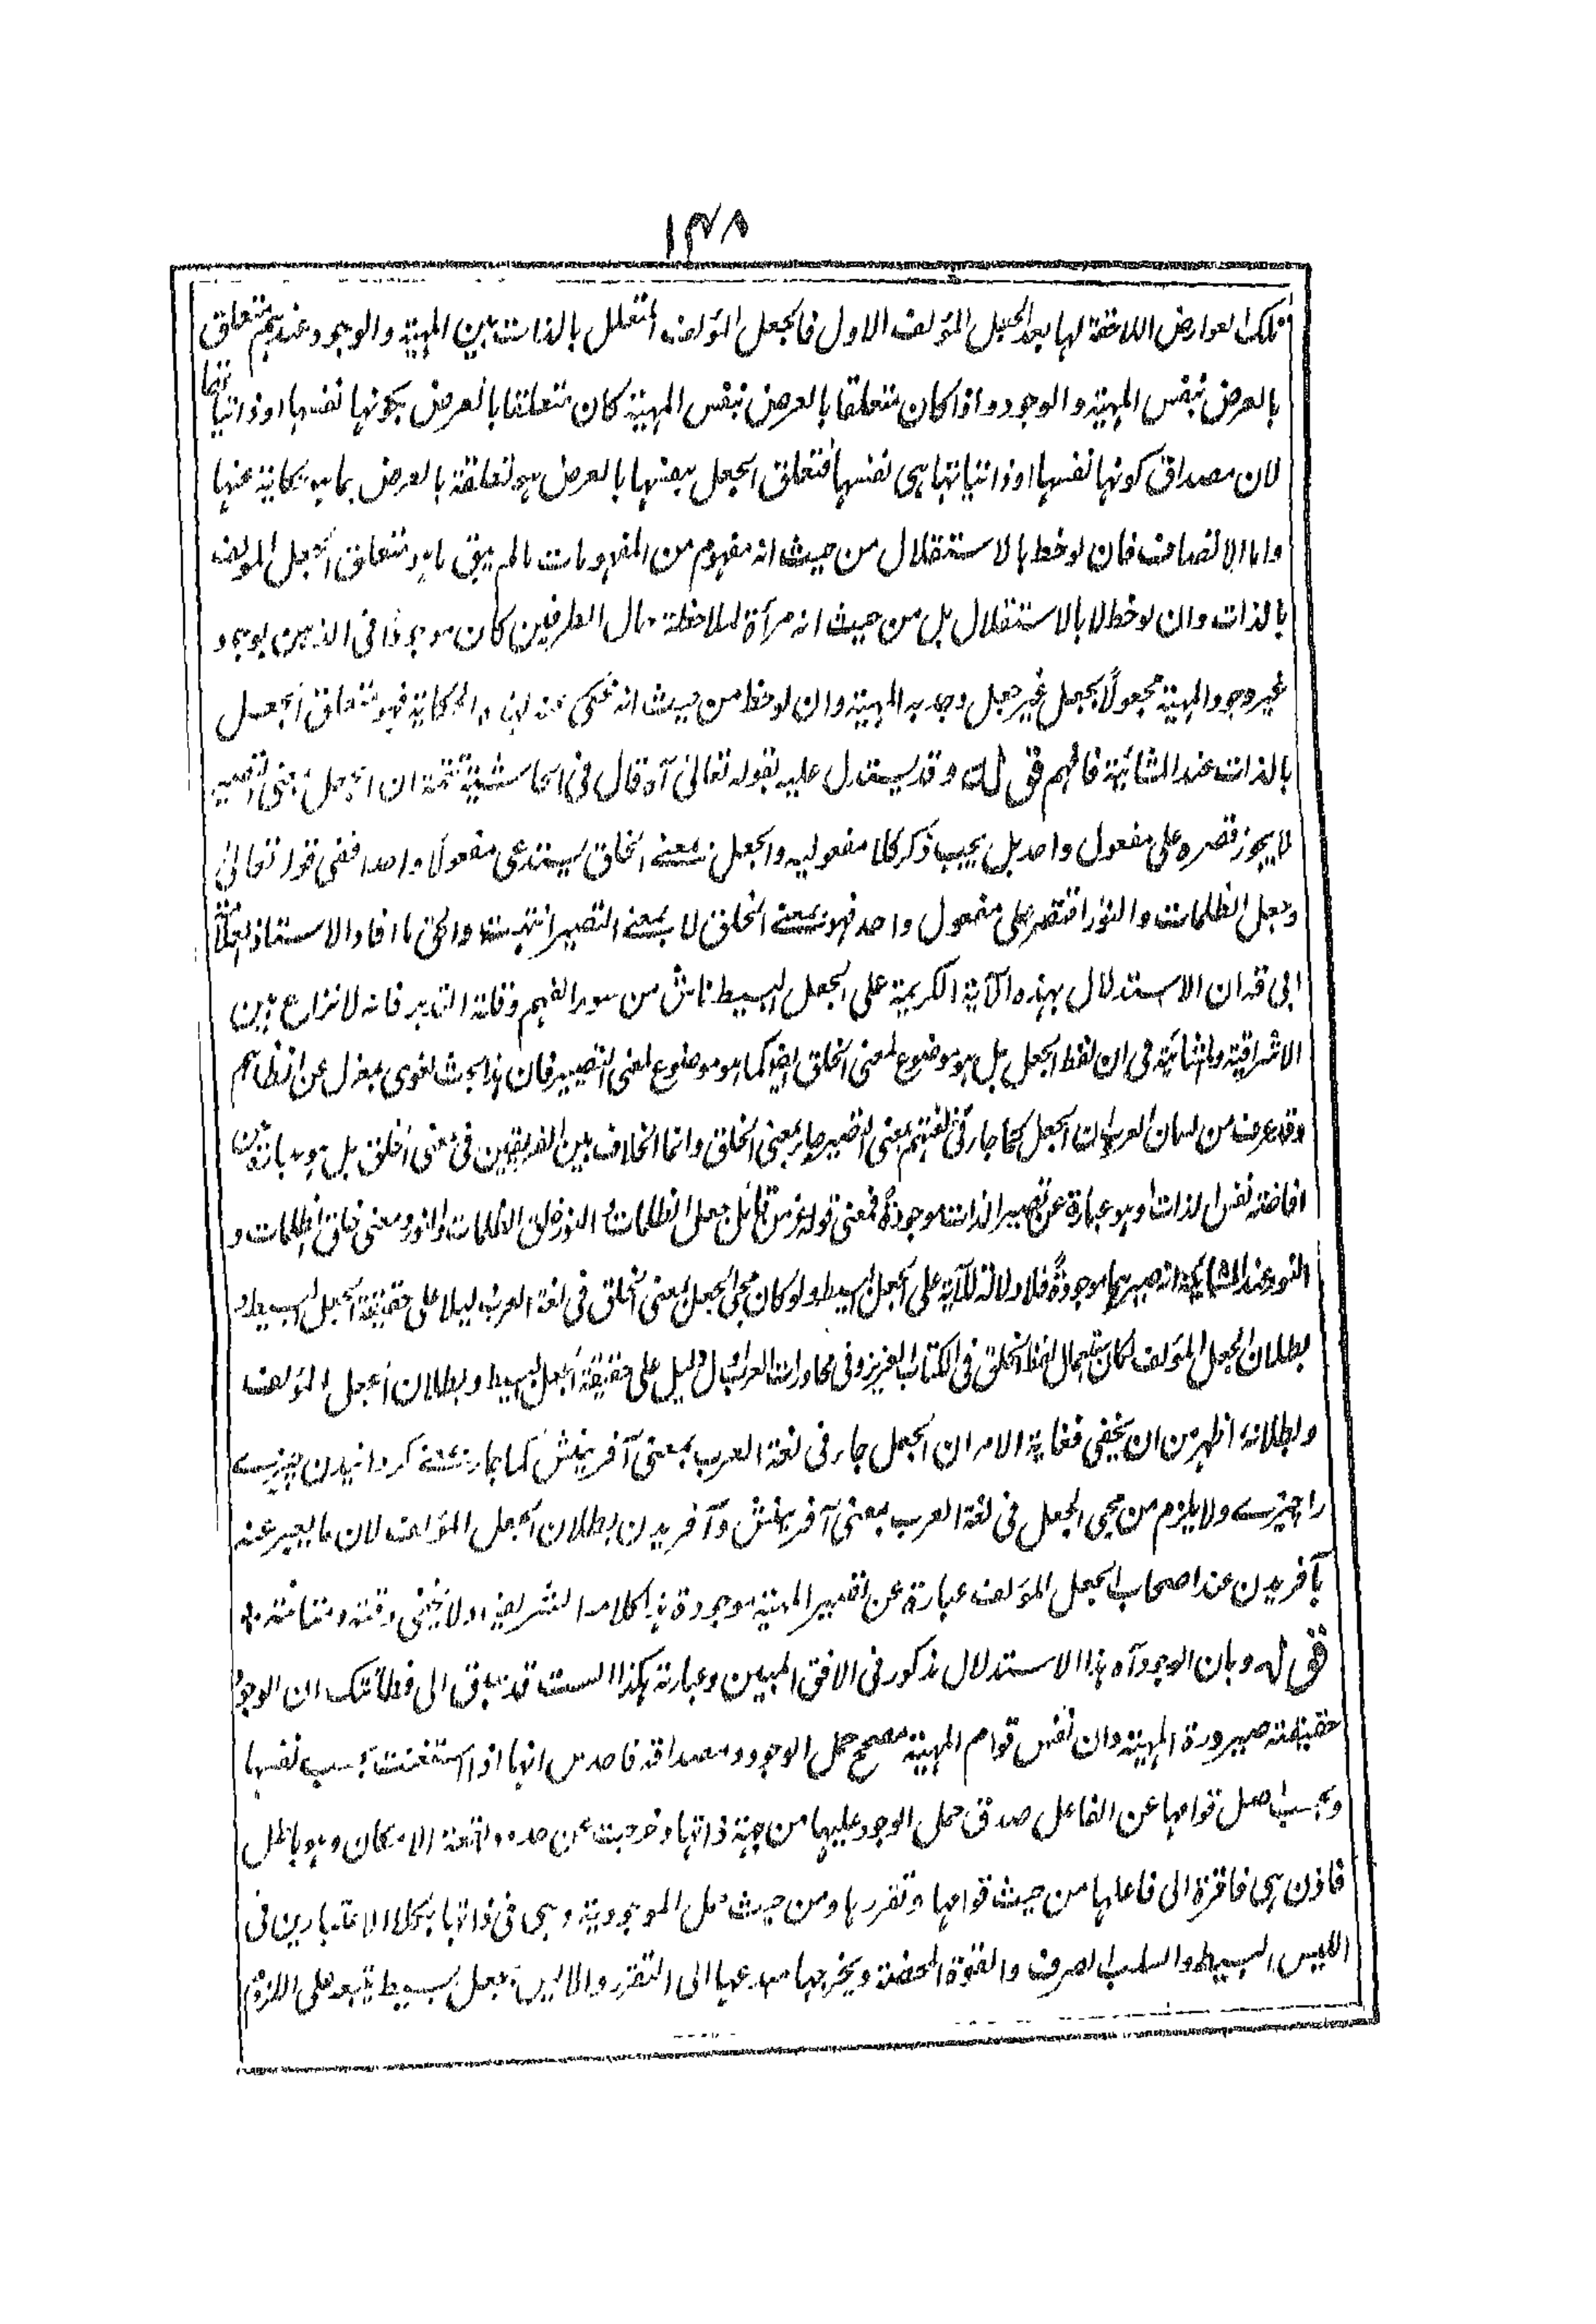 ١٣٨
تلك العوارض اللاحقة لها بعد الجعل المؤلف الاول فالجعل المؤلف المتعلل بالذات بين المهية والوجود عندهم متعلق
بالعرض بنفس المهية والوجود واذا كان متعلقا بالعرض بنفس المهية كان متعلقا بالعرض بكونها نفسها او ذاتياتها
لان مصداق كونها نفسها او ذاتياتها هى نفسها فتعلق الجعل بنفسها بالعرض هو تعلقه بالعرض بما هو حكاية عنها
واما الاتصاف فان لوحظ بالاستقلال من حيث انه مفهوم من المفهومات مالم يبق ما به متعلق الجعل المؤلف
بالذات وان لوحظ لا بالاستقلال بل من حيث انه مرآة لملاحظة حال الطرفين كان موجودا فى الذهن بوجود
غير وجود المهية مجعولا بجعل غير جعل وجد به المهية وان لوحظ من حيث انه محكى عنه لهذه الحكاية فهو متعلق الجعل
بالذات عند المشائية فافهم قوله وقد يستدل عليه بقوله تعالى آه قال فى الحاشية تقريره ان الجعل بمعنى التصيير
لا يجوز قصره على مفعول واحد بل يجب ذكر كلا مفعوليه والجعل بمعنى الخلق يستدعى مفعولا واحدا ففى قوله تعالى
وجعل الظلمات والنور اقتصر على مفعول واحد فهو بمعنى الخلق لا بمعنى التصيير انتهت والحق ما افاد الاستاذ العلامة
ابى قد ان الاستدلال بهذه الآية الكريمة على الجعل البسيط ناش من سوء الفهم وقلة التدبر فانه لا نزاع بين
الاشراقية والمشائية فى ان لفظ الجعل بل هو موضوع لمعنى الخلق ايضا كما هو موضوع لمعنى التصيير فان هذا بحث لغوى بمعزل عن انظارهم
وقد عرف من لسان العرب ان الجعل كما جاء فى لغتهم بمعنى التصيير جاء بمعنى الخلق وانما الخلاف بين الفريقين فى معنى الخلق بل هو
افاضة نفس الذات او هو عبارة عن تصيير الذات موجودة فمعنى قوله عز من قائل جعل الظلمات والنور خلق الظلمات والنور ومعنى خلق الظلمات و
النور عند المشائية انه صيرهما موجودة فلا دلالة للآية على الجعل البسيط ولو كان مجئ الجعل بمعنى الخلق فى لغة العرب دليلا على حقيقة الجعل البسيط و
بطلان الجعل المؤلف لكان استعمال لفظ الخلق فى الكتاب العزيز وفى محاورات العرب دليل على حقيقة الجعل البسيط وبطلان الجعل المؤلف
وبطلانه اظهر من ان يخفى فغاية الامر ان الجعل جاء فى لغة العرب بمعنى آفرينش كما جاء بمعنى كردانيدن چيزے
را چيزے ولا يلزم من مجى الجعل فى لغة العرب بمعنى آفرينش وآفريدن بطلان الجعل المؤلف لان ما يعبر عنه
بآفريدن عند اصحاب الجعل المؤلف عبارة عن تصيير المهية موجودة هذا كلامه الشريف ولا يخفى دقته ومتانته
قوله وبان الوجود آه هذا الاستدلال مذكور فى الافق المبين وعبارته هكذا الست قد سبق الى فطانتك ان الوجود
حقيقته صيرورة المهية وان نفس قوام المهية مصحح حمل الوجود ومصداقه فاحدس انها اذا استغنت بحسب نفسها
وبحسب اصل قوامها عن الفاعل صدق حمل الوجود عليها من جهة ذاتها وخرجت عن حدود بقعة الامكان وهو باطل
فاذن هى فاقرة الى فاعلها من حيث قوامها وتقررها ومن حيث حمل الموجودية وهى فى ذاتها بكلا الاعتبارين فى
الليس البسيط والسلب الصرف والقوة المحضة ويخرجها مبدعها الى التقرر والايس بجعل بسيط يتبعه على اللزوم